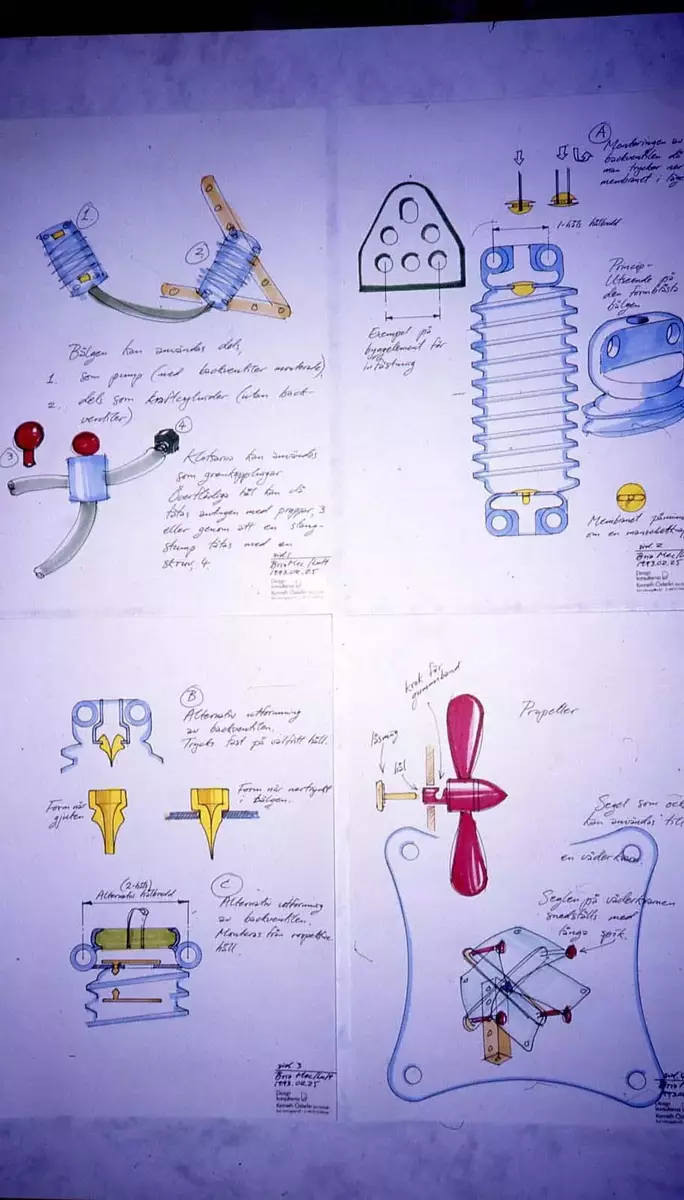 1
2
Bälgen kan användas dels,
1. som pump (med backventiler monterade)
2. dels som kraftcylinder (utan back-
ventiler)
3
4
Klotsarna kan användas
som grenkopplingar
Överflödiga hål kan då
tätas antingen med proppar, 3
eller genom att en slang-
stump tätas med en
skruv, 4.
sid 1
Brio Mec/Luft
1993.02.25
Design
Kenneth Österlin
A
Monteringen av
backventilen då
man trycker ner
membranet i läge
1-håls hålbredd
Exempel på
byggelement för
infästning
Princip-
Utseende på
den formblåsta
bälgen
Membranet
om en
sid 2
Brio Mec/Luft
1993.02.25
Design
Kenneth Österlin
B
Alternativ utformning
av backventilen.
Trycks fast på valfritt håll.
Form när
gjuten
Form när nertryckt
i bälgen.
(2-håls)
Alternativ hålbredd
C
Alternativ utformning
av backventilen.
Monteras från respektive
håll.
sid 3
Brio Mec/Luft
1993.02.25
Design
Kenneth Österlin
krok för
gummiband
Propeller
låsning
hål
Segel som
kan användas till
en väderkvarn.
Seglen på väderkvarnen
snedställs med
långa